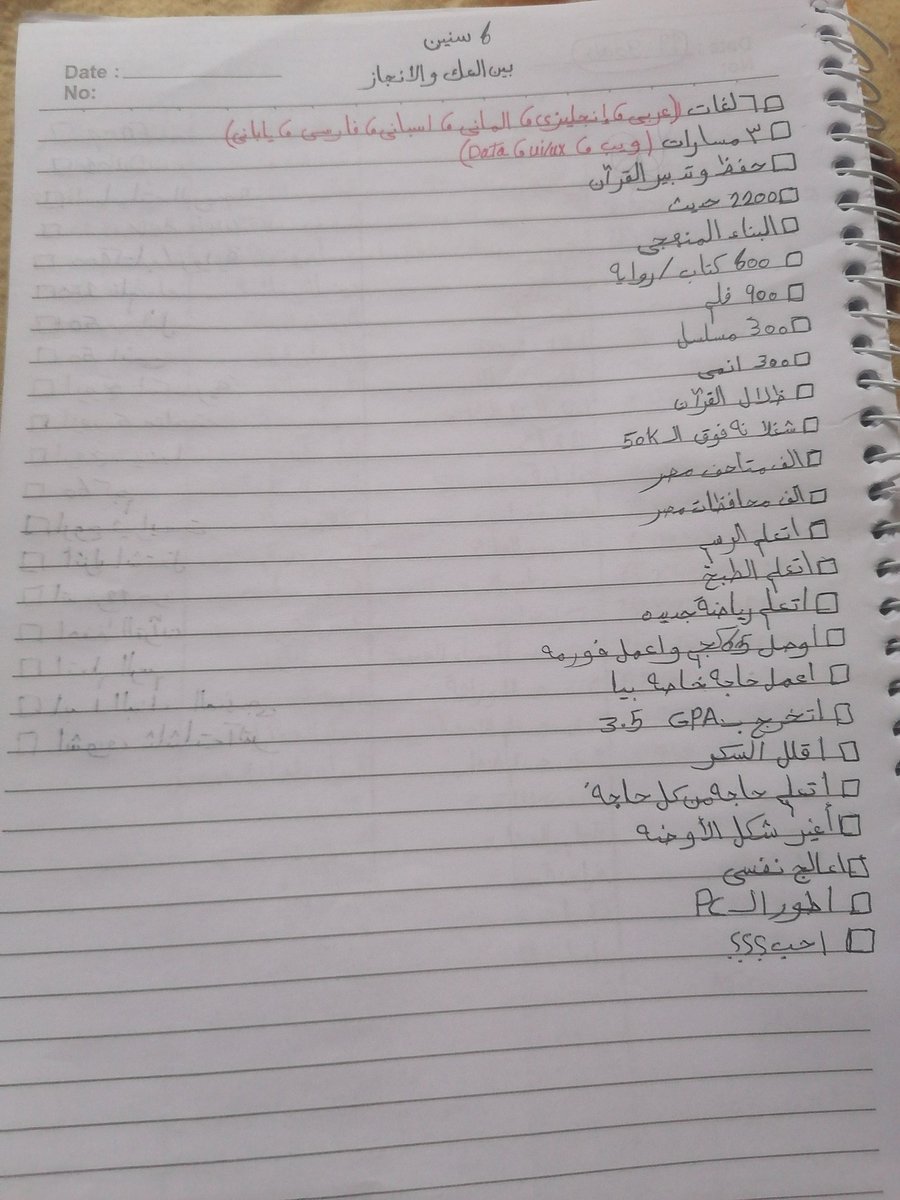 Date :
No:
6 سنين
بين العك والانجاز
٦ لغات (عربي، إنجليزي، الماني، اسباني، فارسي، ياباني)
٣ مسارات (ويب، ui/ux، Data)
حفظ وتدبير القرآن
2200 حديث
البناء المنهجي
600 كتاب / رواية
900 فلم
300 مسلسل
300 انمي
ظلال القرآن
شغلانة فوق الـ 50K
الف متاحف مصر
الف محافظات مصر
اتعلم الرسم
اتعلم الطبخ
اتعلم رياضة جديده
اوصل 65 كجم واعمل فورمه
اعمل حاجة خاصة بيا
اتخرج بـ GPA 3.5
أقلل السكر
أتعلم حاجه من كل حاجة
أغير شكل الأوضه
اعالج نفسي
اطور الـ PC
احب؟؟؟؟